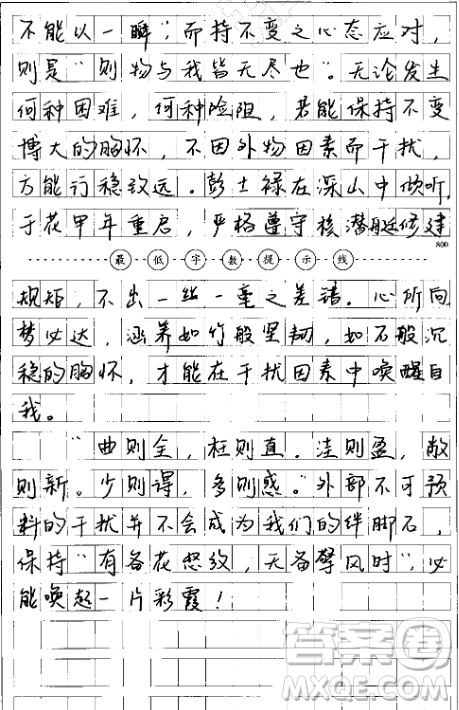 不能以一瞬”；而持不变之心态应对，
则是“则物与我皆无尽也”。无论发生
何种困难，何种险阻，若能保持不变
博大的胸怀，不因外物因素而干扰，
方能行稳致远。彭士禄在深山中倾听，
于花甲年重启，严格遵守核潜艇修建
800
最低字数提示线
规矩，不出一丝一毫之差错。心所向
梦必达，涵养如竹般坚韧，如石般沉
稳的胸怀，才能在干扰因素中唤醒自
我。
“曲则全，枉则直。洼则盈，敝
则新。少则得，多则惑。”外部不可预
料的干扰并不会成为我们的绊脚石，
保持“有备花怒放，无备擎风时”，必
能唤起一片彩霞！
答案卷
MXQE.COM